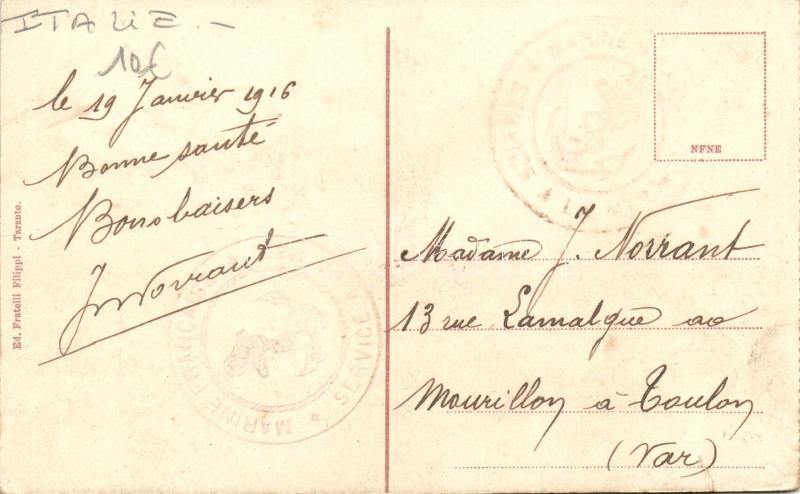 ITALIE -
10€
le 19 Janvier 1916
Bonne santé
Bons baisers
J Norrant
Ed. Fratelli Filippi - Taranto.
MARINE FRANÇAISE
SERVICE
MARINE
NFNE
Madame J. Norrant
13 rue Lamalgue au
Mourillon à Toulon
(Var)